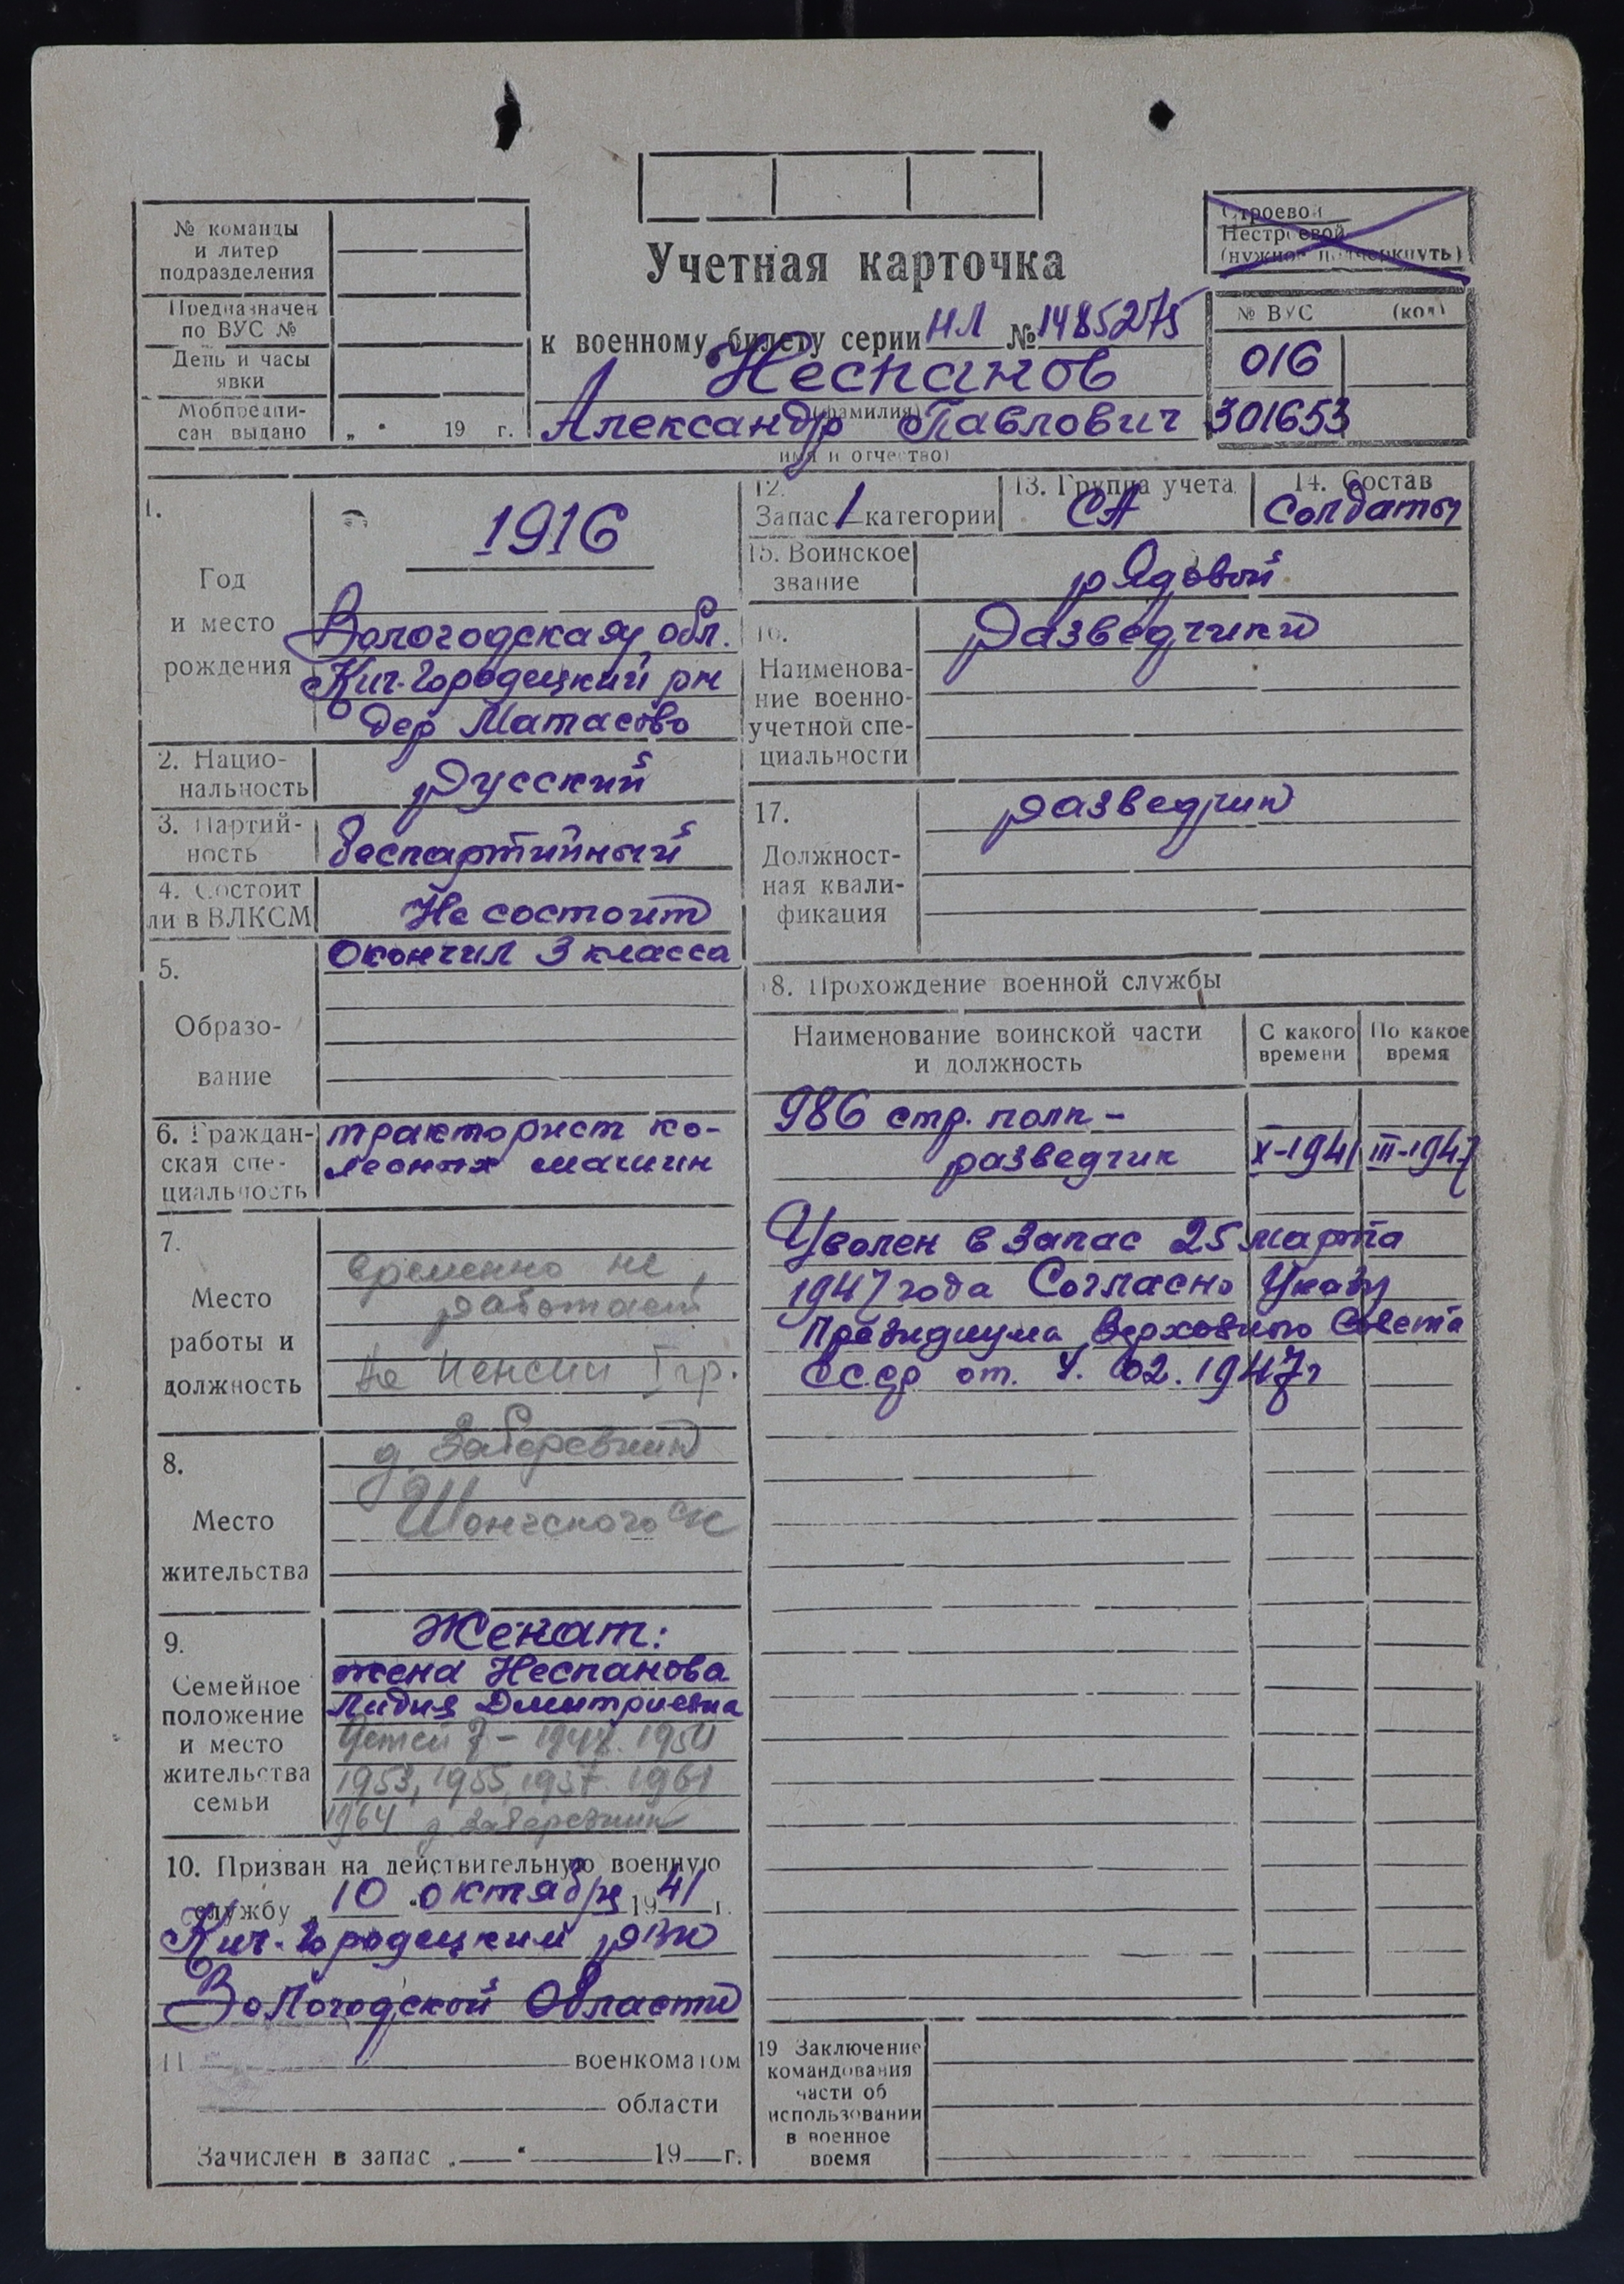 № команды
и литер
подразделения
Предназначен
по ВУС №
День и часы
явки
Мобпредпи-
сан выдано „ “ 19 г.
Учетная карточка
к военному билету серии НЛ № 1485275
Неспанов
(фамилия)
Александр Павлович
имя и отчество)
Строевой
Нестроевой
(нужное подчеркнуть)
№ ВУС (код)
016
301653
1.
Год
и место
рождения
1916
Вологодская обл.
Кич-Городецкий рн
дер Матасово
2. Нацио-
нальность
Русский
3. Партий-
ность
беспартийный
4. Состоит
ли в ВЛКСМ
Не состоит
5.
Образо-
вание
Окончил 3 класса
6. Граждан-
ская спе-
циальность
тракторист ко-
лесных машин
7.
Место
работы и
должность
временно не
работает
на пенсии I гр.
8.
Место
жительства
д. Задеревник
Шонгского с/с
9.
Семейное
положение
и место
жительства
семьи
Женат:
жена Неспанова
Лидия Дмитриевна
Детей 7 - 1948. 1950
1953, 1955, 1957. 1961
1964 д Задеревник
10. Призван на действительную военную
службу „ 10 “ октября 1941 г.
Кич-Городецким РВК
Вологодской Области
11. военкоматом
области
Зачислен в запас „ “ 19 г.
12.
Запас 1 категории
13. Группа учета
СА
14. Состав
Солдаты
15. Воинское
звание
рядовой
16.
Наименова-
ние военно-
учетной спе-
циальности
Разведчики
17.
Должност-
ная квали-
фикация
разведчик
18. Прохождение военной службы
Наименование воинской части
и должность
С какого
времени
По какое
время
986 стр. полк -
разведчик X-1941 III-1947
Уволен в запас 25 марта
1947 года Согласно Указу
Президиума Верховного Совета
СССР от. 02. 1947г
19 Заключение
командования
части об
использовании
в военное
время